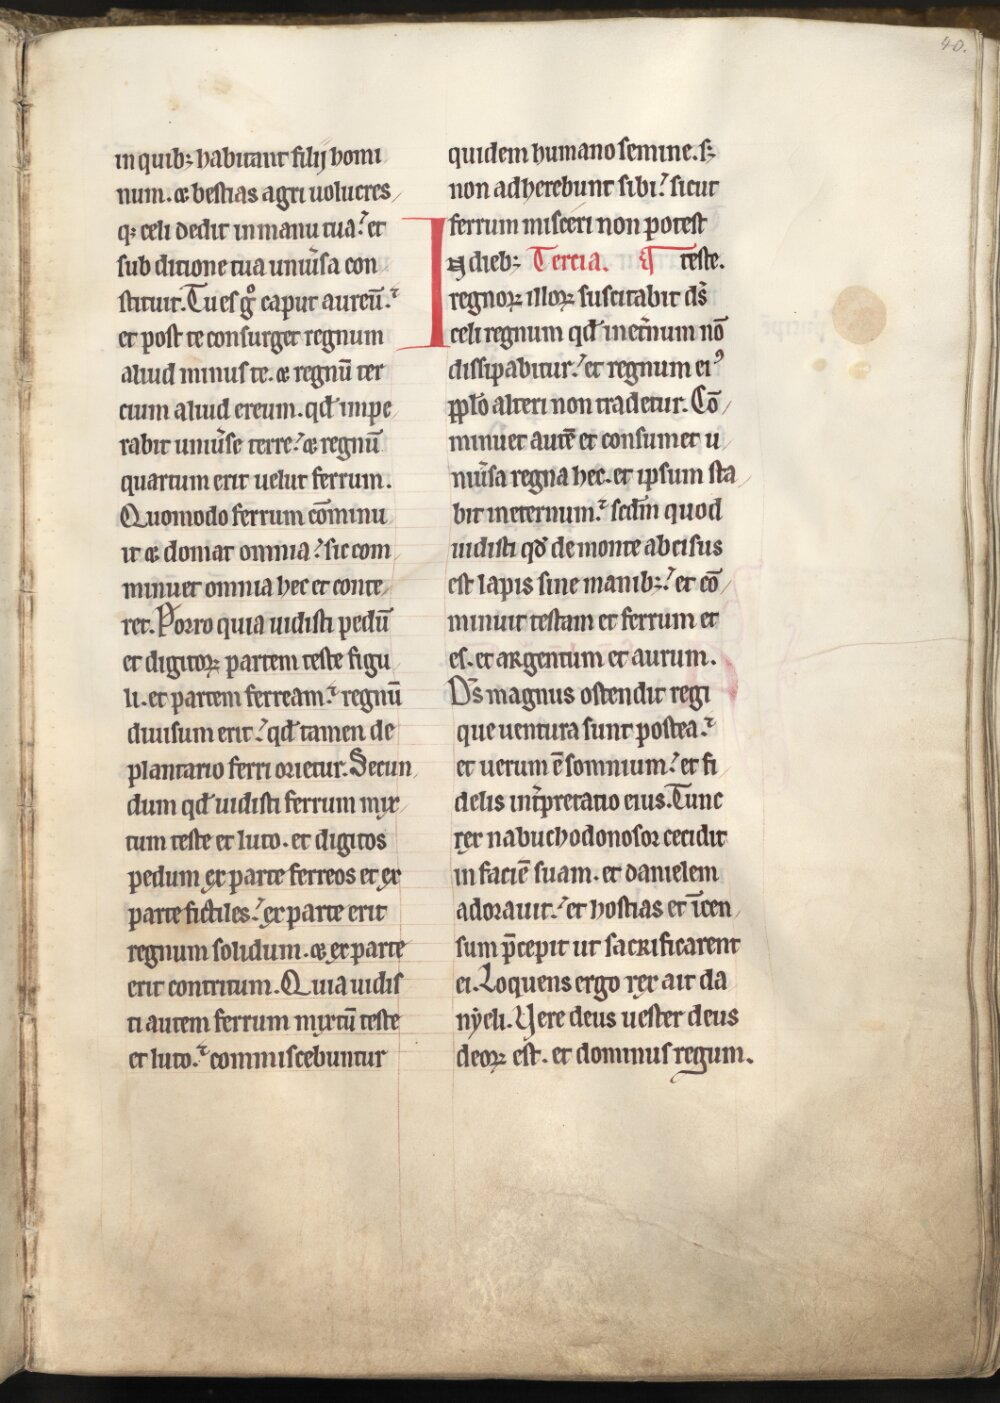 40.
in quibꝫ habitant filij homi
num. ⁊ bestias agri uolucres
qꝫ celi dedit in manu tua. et
sub ditione tua uniu͛sa con
stituit. Tu es gͦ caput aureū.
et post te consurget regnum
aliud minus te. ⁊ regnū ter
cium aliud ereum. qd̄ impe
rabit uniu͛se terre. ⁊ regnū
quartum erit uelut ferrum.
Quomodo ferrum cōminu
it ⁊ domat omnia. sic com
minuet omnia hec et conte
ret. Porro quia uidisti pedū
et digitoꝝ partem teste figu
li. et partem ferream. regnū
diuisum erit. qd̄ tamen de
plantario ferri orietur. Secun
dum qd̄ uidisti ferrum mix
tum teste et luto. et digitos
pedum ex parte ferreos et ex
parte fictiles. ex parte erit
regnum solidum. ⁊ ex parte
erit contritum. Quia uidis
ti autem ferrum mixtū teste
et luto. commiscebuntur
quidem humano semine. sꝫ
non adherebunt sibi. sicut
ferrum misceri non potest
teste.
IN diebꝫ Tercia.
regnoꝝ illoꝝ suscitabit ds̄
celi regnum qd̄ inet͛num nō
dissipabitur. et regnum eiꝰ
pp̄lo alteri non tradetur. Cō
minuet autē et consumet u
niu͛sa regna hec. et ipsum sta
bit ineternum. scdm̄ quod
uidisti qd̄ de monte abcisus
est lapis sine manibꝫ. et cō
minuit testam et ferrum et
es. et argentum et aurum.
Ds̄ magnus ostendit regi
que uentura sunt postea.
et uerum ē somnium. et fi
delis int͛pretatio eius. Tunc
rex nabuchodonosor cecidit
in faciē suam. et danielem
adorauit. et hostias et īcen
sum p̄cepit ut sacrificarent
ei. Loquens ergo rex ait da
nẏeli. Vere deus uester deus
deoꝝ est. et dominus regum.